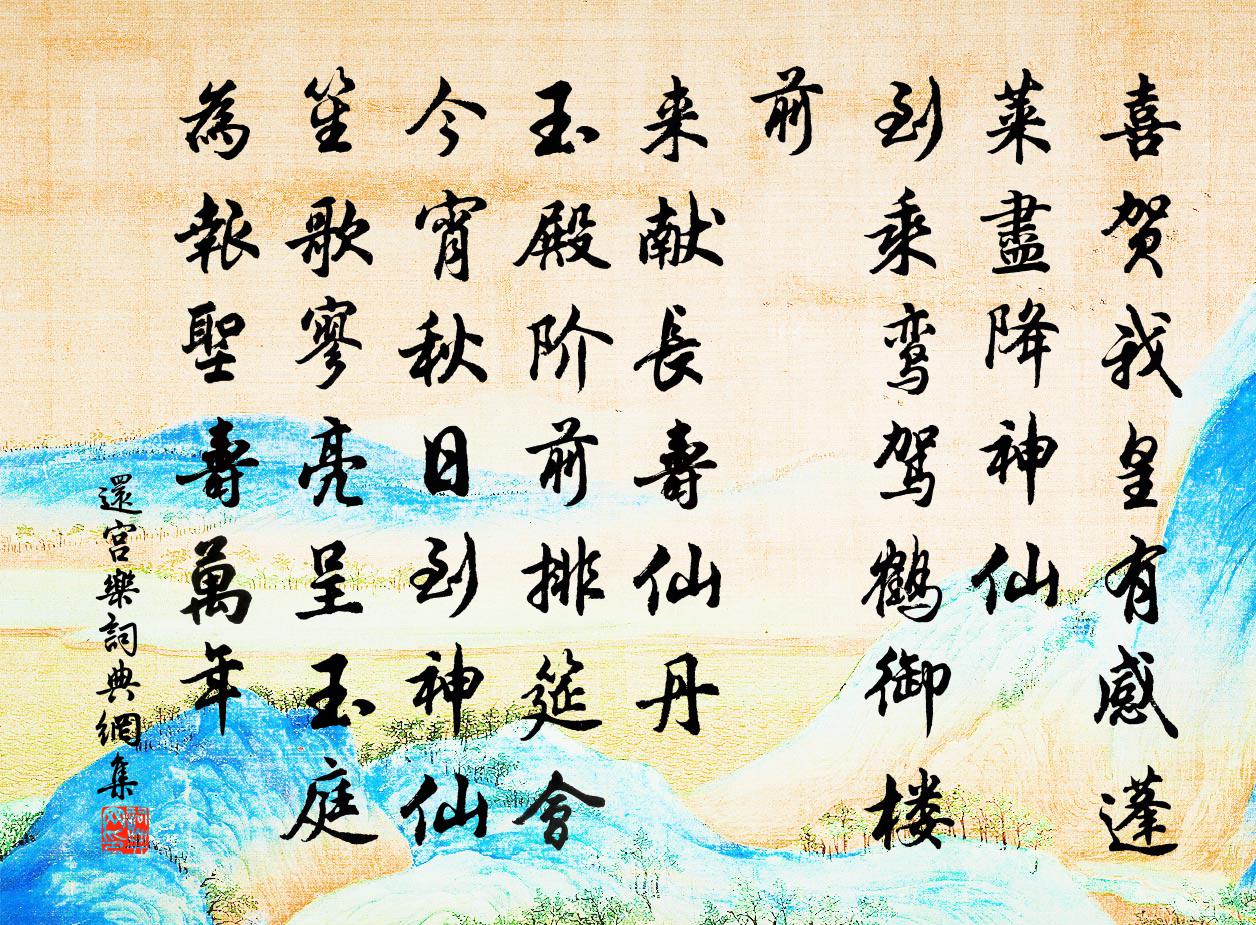 喜贺我皇有感蓬
莱盡降神仙
到乘鸾駕鶴御楼
前
来献長壽仙丹
玉殿阶前排筵會
今宵秋日到神仙
笙歌寥亮呈玉庭
為報聖壽萬年
還宮樂詞典網集